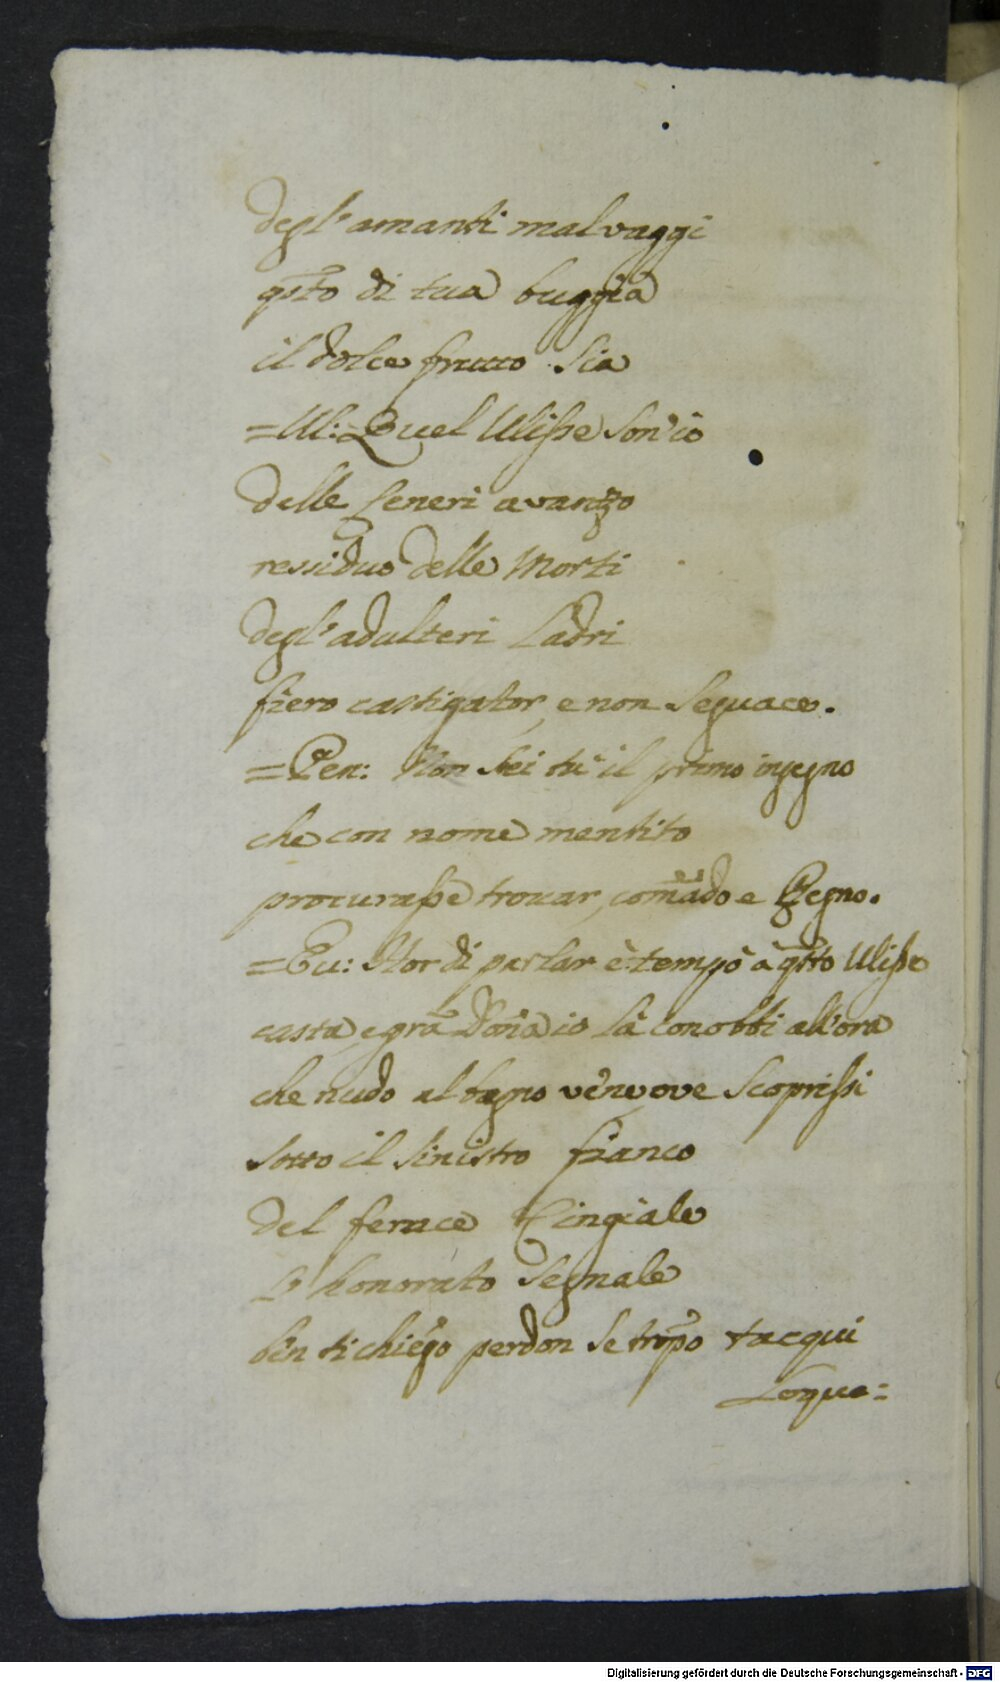 degl'amanti malvaggi
qsto di tua buggia
il dolce frutto sia
=Ul: Quel Ulisse son'io
delle Ceneri avanzo
ressiduo delle Morti
degl'adulteri Ladri
fiero castigator, e non seguace.
=Pen: Non sei tu il primo ingegno
che con nome mentito
procurasse trovar, comãdo e Regno.
=Eu: Hor di parlar è tempo è qsto Ulisse
casta, e grã Dõna io lo conobbi all'ora
che nudo al bagno vẽne, ove scoprissi
sotto il sinistro fianco
del feruce Cingiale
L'honorato segnale
ben ti chieggo perdon se troppo tacqui
Loqua=
Digitalisierung gefördert durch die Deutsche Forschungsgemeinschaft - DFG